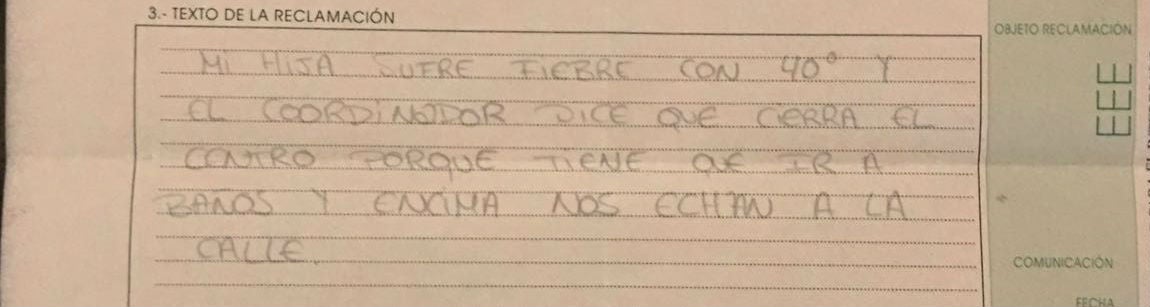 3.- TEXTO DE LA RECLAMACIÓN
OBJETO RECLAMACIÓN
MI HIJA SUFRE FIEBRE CON 40° Y
EL COORDINODOR DICE QUE CIERRA EL
CENTRO PORQUE TIENE QUE IR A
BAÑOS Y ENCIMA NOS ECHAN A LA
CALLE.
COMUNICACIÓN
FECHA